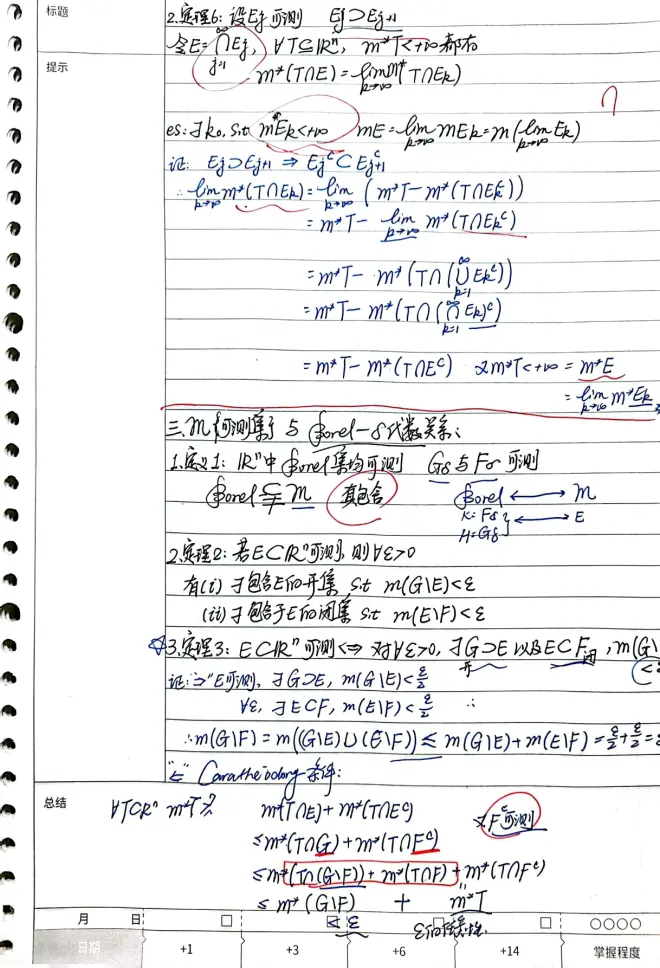 标题
提示
2.定理6: 设Ej可测 Ej⊃Ej+1
令E=∩_{j=1}^∞ Ej, ∀T⊆ℝⁿ, m*T<+∞ 都有
m*(T∩E)=lim_{k→∞} m*(T∩Ek)
es:∃k₀, s.t. m*Ek<+∞ mE=lim_{k→∞} mEk=m(lim Ek)
证: Ej⊃Ej+1 ⇒ Ej^c⊂Ej+1^c
∴lim_{k→∞} m*(T∩Ek)=lim_{k→∞} (m*T-m*(T∩Ek^c))
=m*T-lim_{k→∞} m*(T∩Ek^c)
=m*T-m*(T∩(∪_{k=1}^∞ Ek^c))
=m*T-m*(T∩(∩_{k=1}^∞ Ek)^c)
=m*T-m*(T∩E^c) 又m*T<+∞ =m*E
=lim_{k→∞} m*Ek
三、M{可测集} 与 Borel-δ代数关系:
1.定义1: ℝⁿ中Borel集均可测 Gδ与Fσ可测
Borel⊊M 真包含 Borel⟷M
K=Fδ
H=Gδ } ⟷E
2.定理2: 若E⊂ℝⁿ可测, 则∀ε>0
有(i) ∃包含E的开集 s.t m(G\E)<ε
(ii) ∃包含于E的闭集 s.t m(E\F)<ε
☆3.定理3: E⊂ℝⁿ可测⟺对∀ε>0, ∃G⊃E以及E⊂F闭, m(G\
开 <ε
证:"⊃"E可测, ∃G⊃E, m(G\E)<ε/2
∀ε, ∃E⊂F, m(E\F)<ε/2 ∴
∴m(G\F)=m((G\E)∪(E\F))≤m(G\E)+m(E\F)=ε/2+ε/2=ε
"⇐" Caratheodory条件:
总结
∀T⊂ℝⁿ m*T≥ m*(T∩E)+m*(T∩E^c) 又F^c可测
≤m*(T∩G)+m*(T∩F^c)
≤m*(T∩(G\F))+m*(T∩F)+m*(T∩F^c)
≤m*(G\F) + m*T
≤ε ε的任意性
月 日
日期 +1 +3 +6 +14 掌握程度